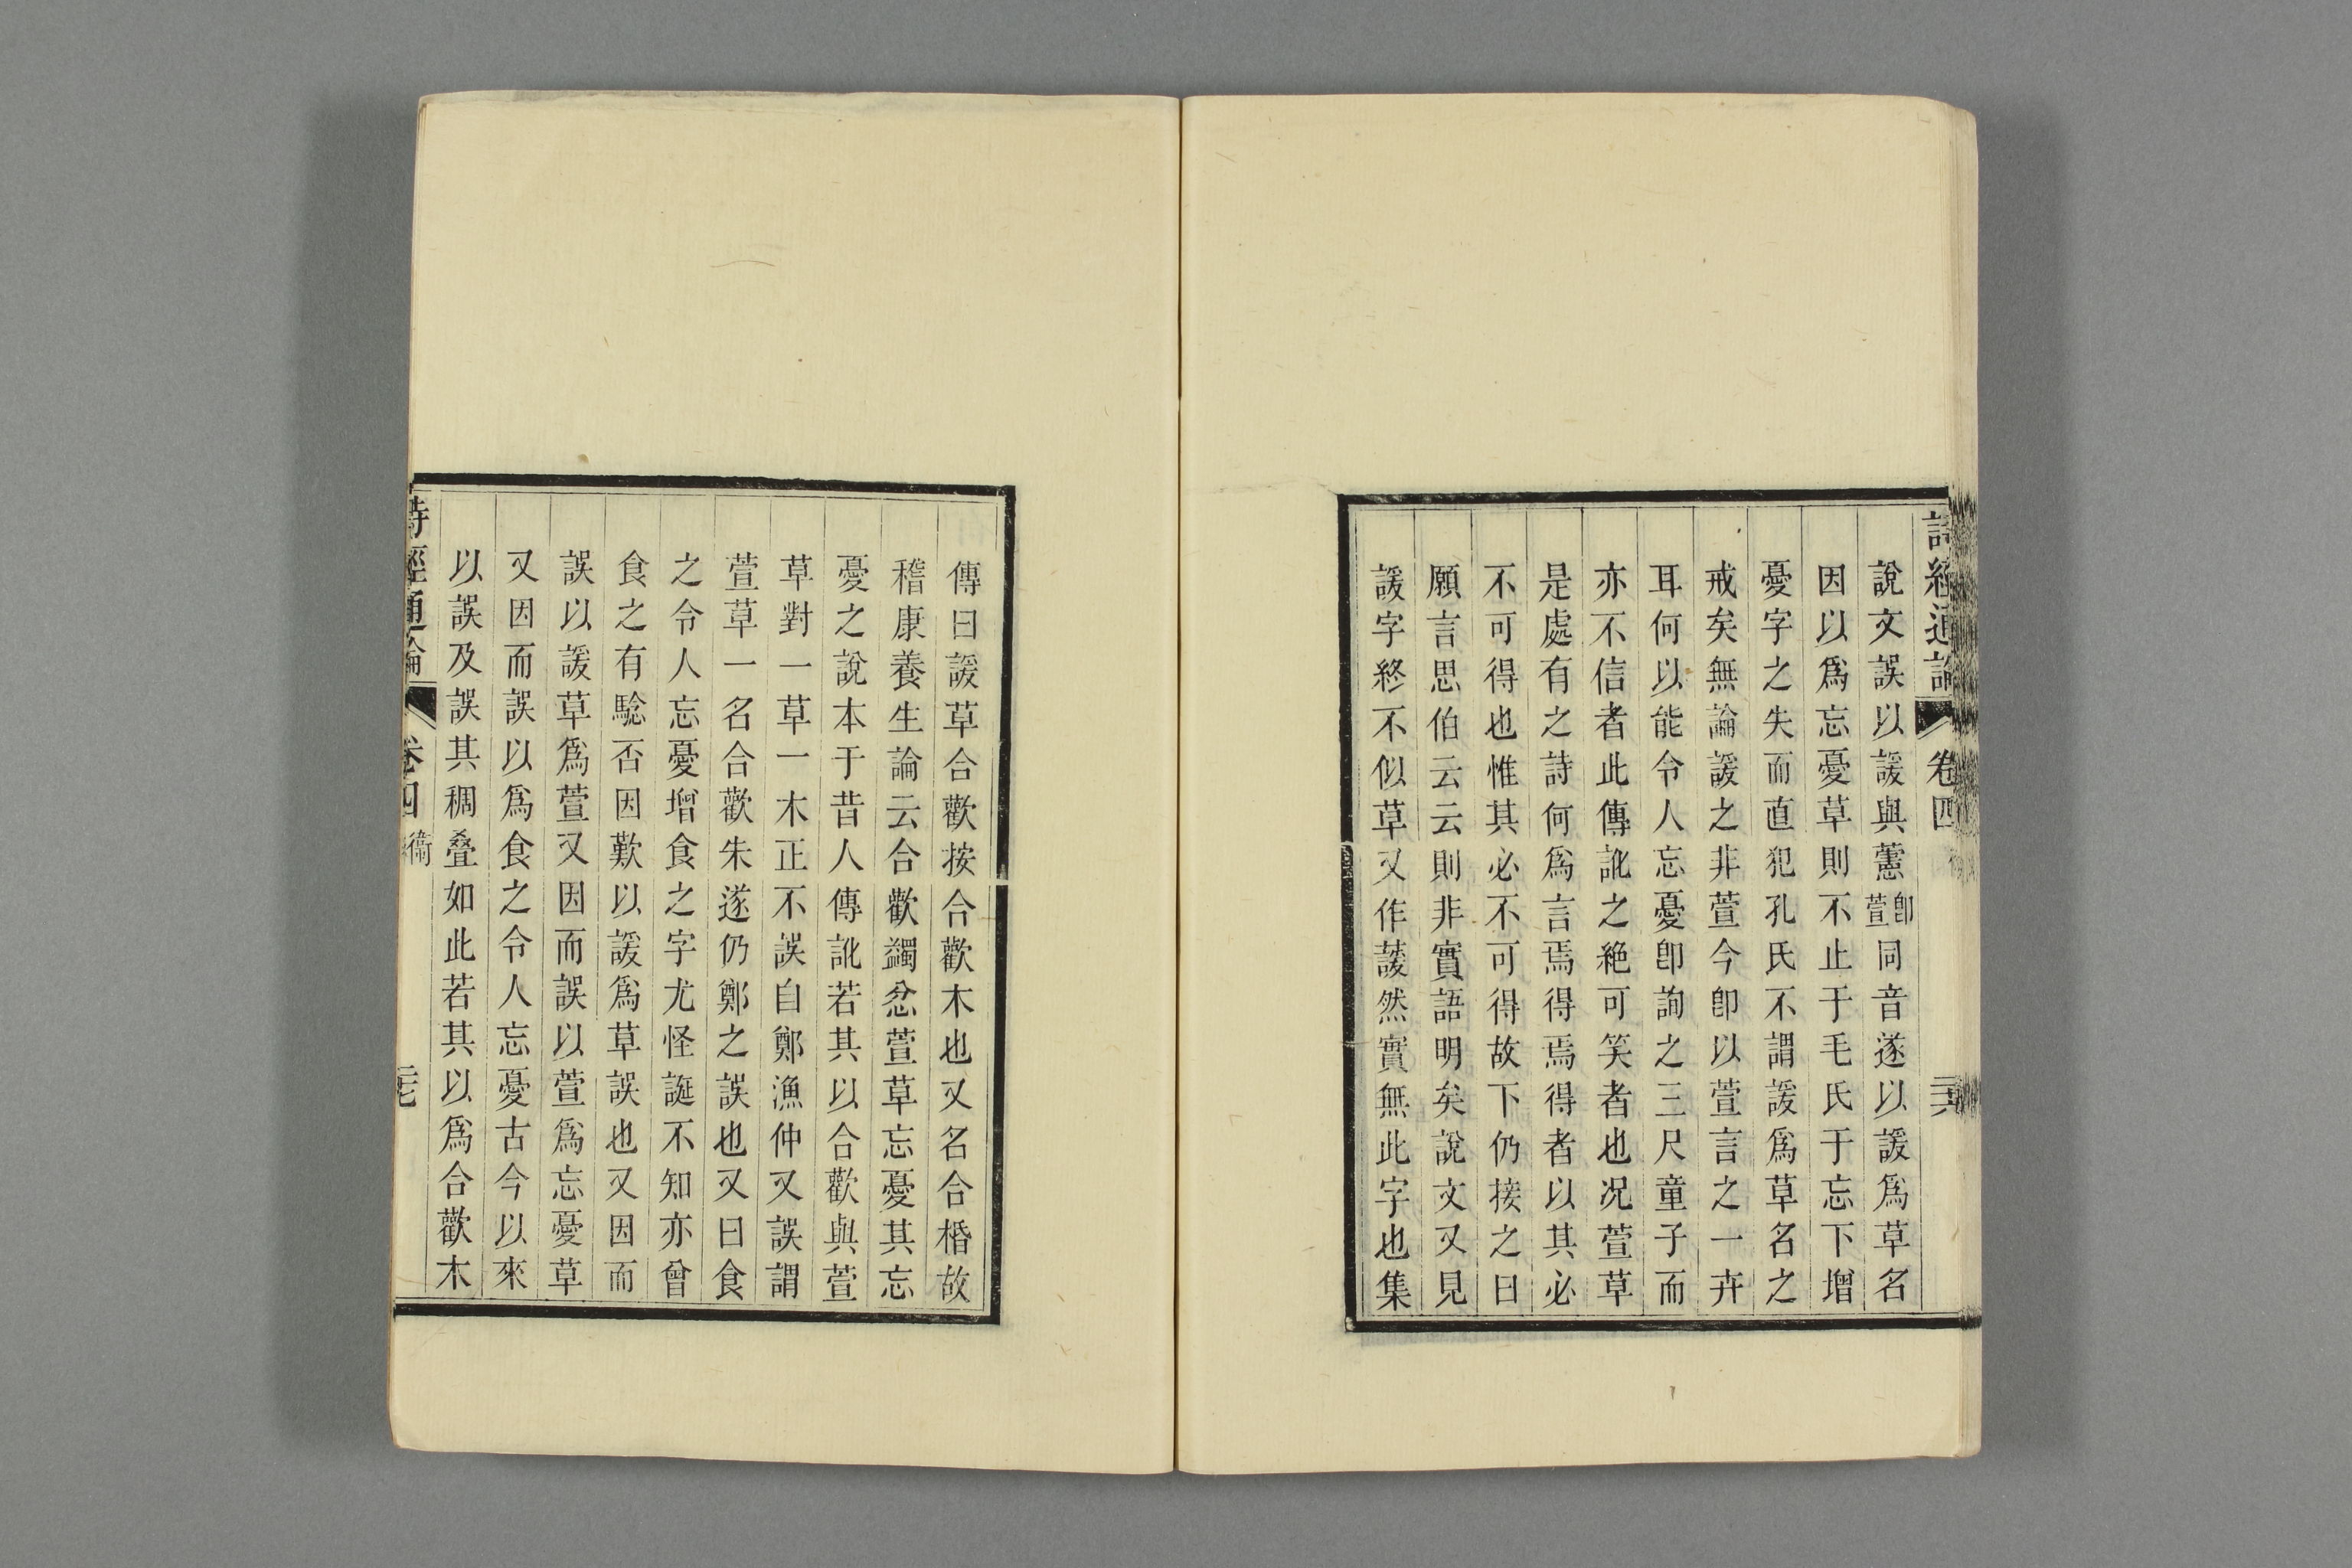 詩經通論 卷四 三六
說文誤以諼與藼卽萱同音遂以諼爲草名
因以爲忘憂草則不止于毛氏于忘下增
憂字之失而直犯孔氏不謂諼爲草名之
戒矣無論諼之非萱今卽以萱言之一卉
耳何以能令人忘憂卽詢之三尺童子而
亦不信者此傳訛之絶可笑者也况萱草
是處有之詩何爲言焉得焉得者以其必
不可得也惟其必不可得故下仍接之曰
願言思伯云云則非實語明矣說文又見
諼字終不似草又作藼然實無此字也集
傳曰諼草合歡按合歡木也又名合㮂故
稽康養生論云合歡蠲忿萱草忘憂其忘
憂之說本于昔人傳訛若其以合歡與萱
草對一草一木正不誤自鄭漁仲又誤謂
萱草一名合歡朱遂仍鄭之誤也又曰食
之令人忘憂增食之字尤怪誕不知亦曾
食之有驗否因歎以諼爲草誤也又因而
誤以諼草爲萱又因而誤以萱爲忘憂草
又因而誤以爲食之令人忘憂古今以來
以誤及誤其稠叠如此若其以爲合歡木
詩經通論 卷四 衞 三七